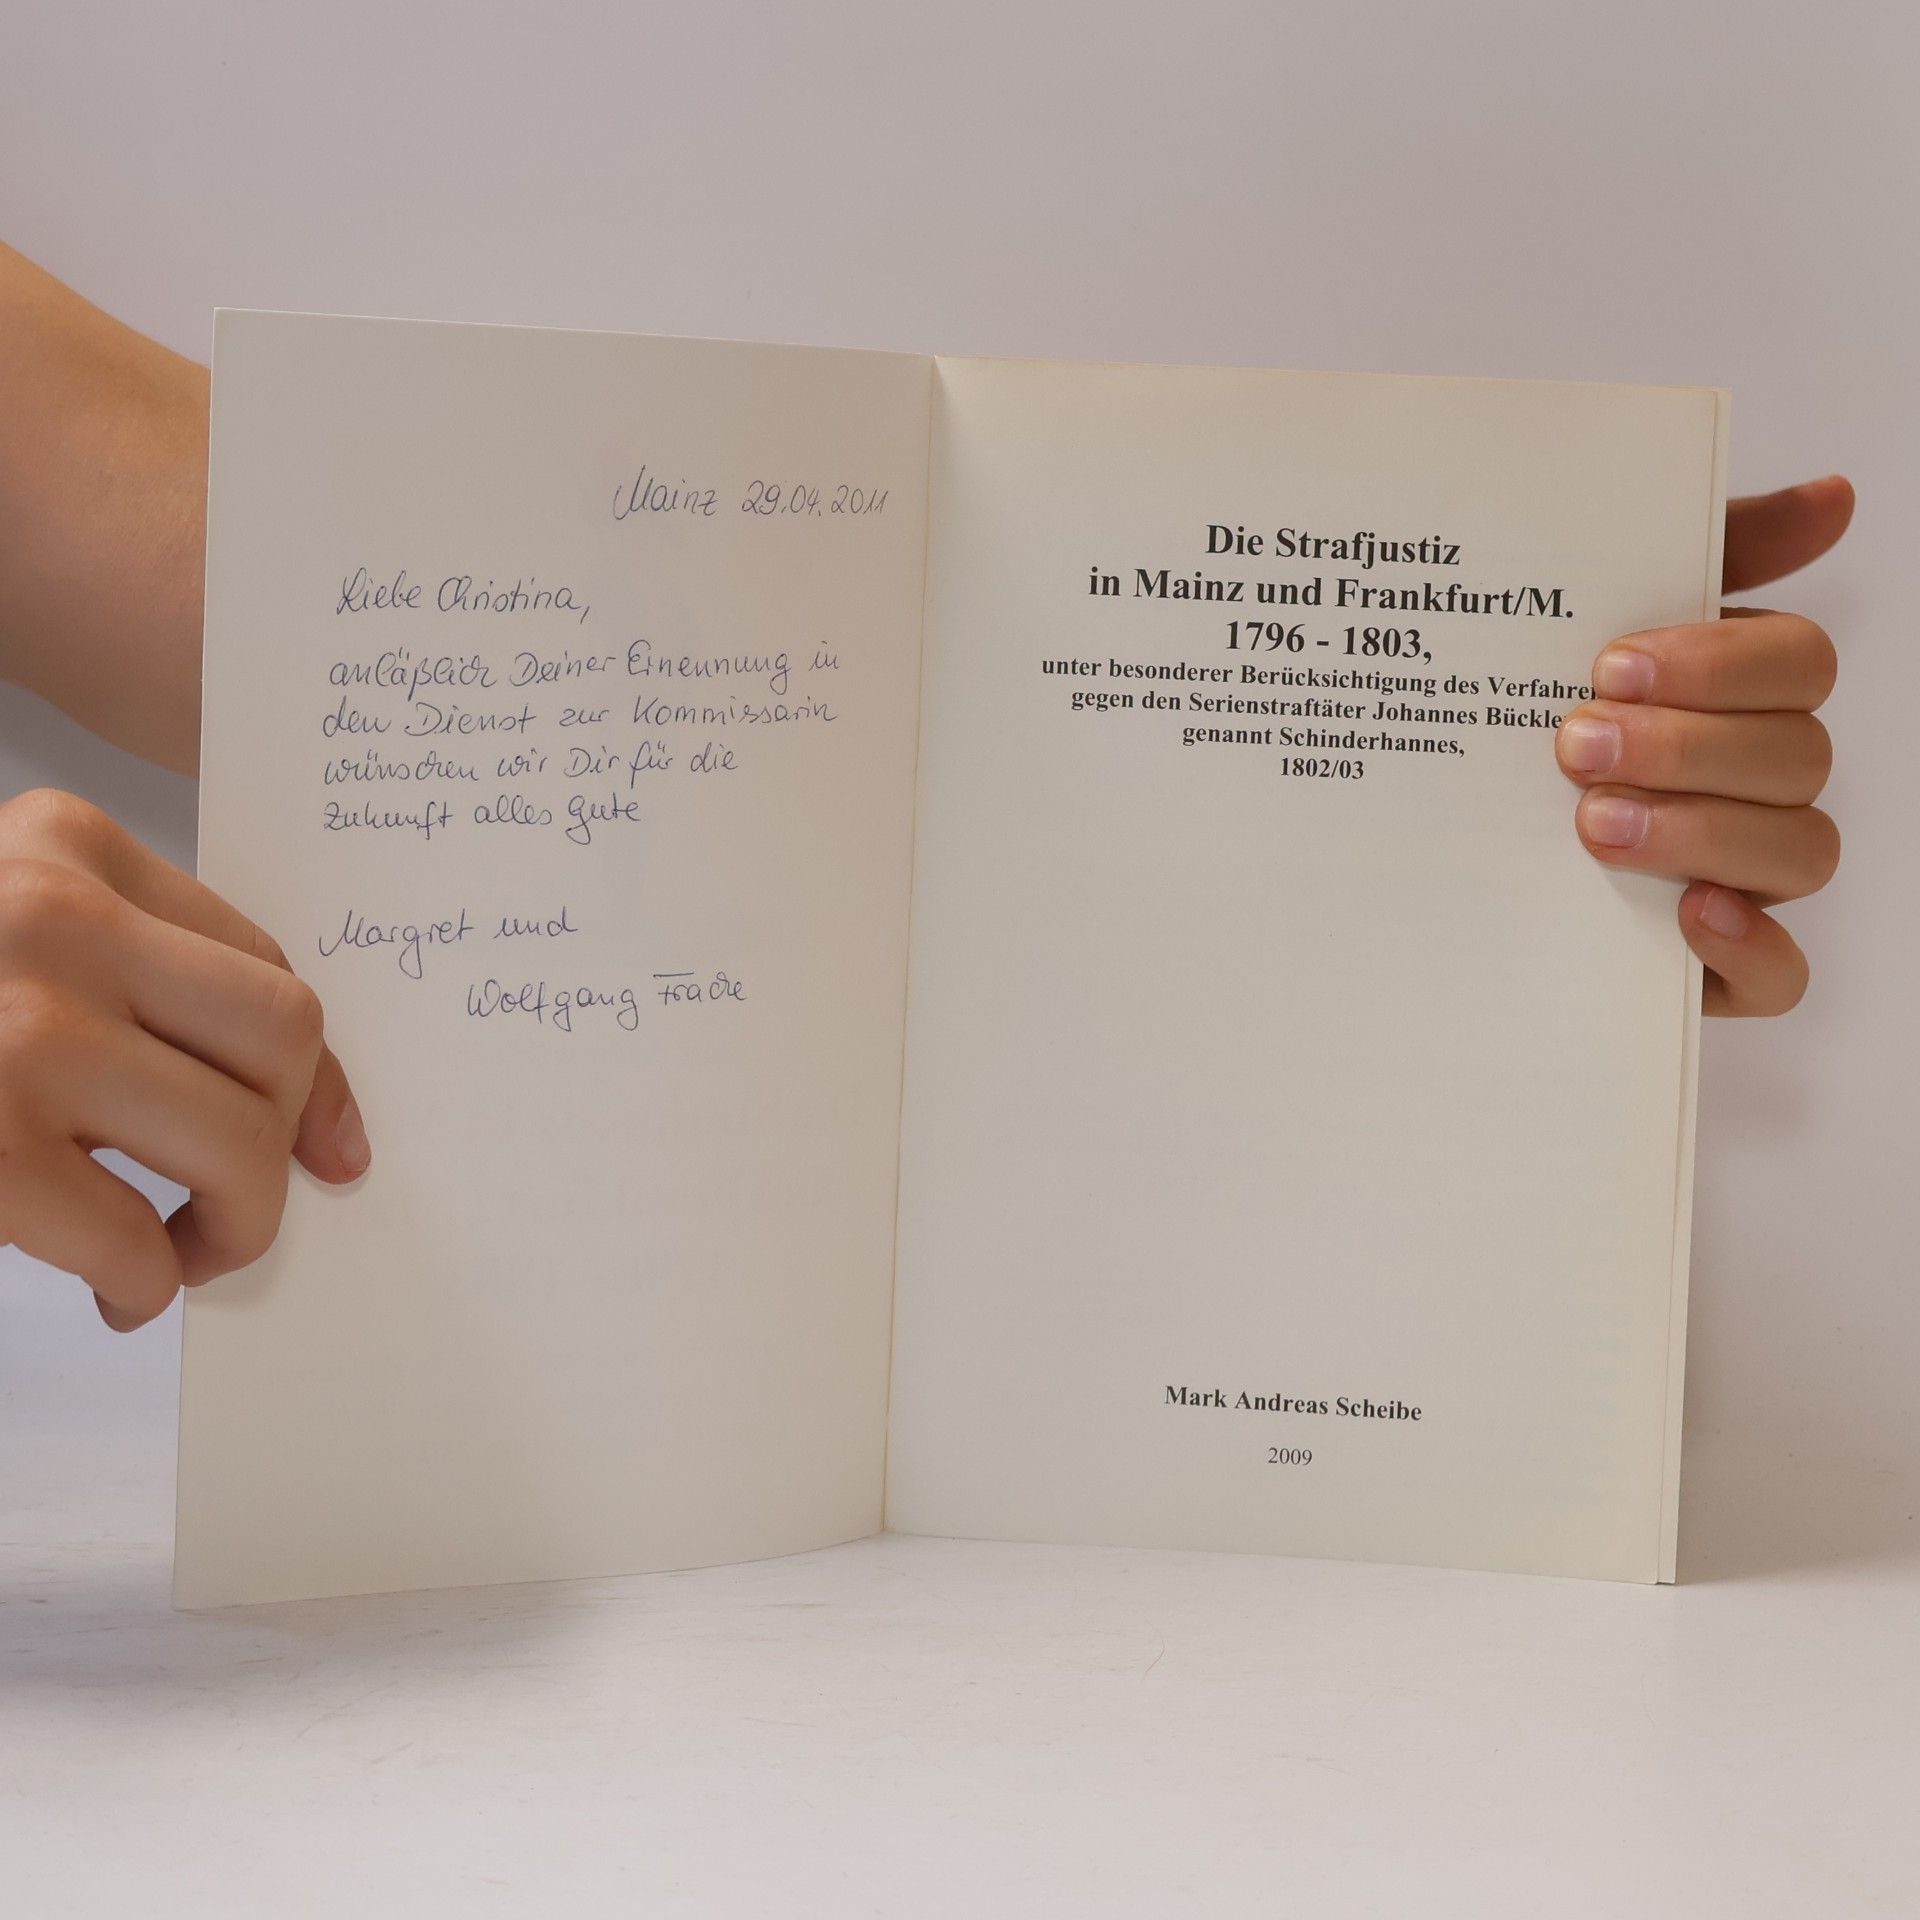 Mainz 29.04.2011
Liebe Christina,
anläßlich Deiner Ernennung in
den Dienst zur Kommissarin
wünschen wir Dir für die
Zukunft alles Gute
Margret und
Wolfgang
Die Strafjustiz
in Mainz und Frankfurt/M.
1796 - 1803,
unter besonderer Berücksichtigung des
gegen den Serienstraftäter Johannes
genannt Schinderhannes,
1802/03
Mark Andreas Scheibe
2009